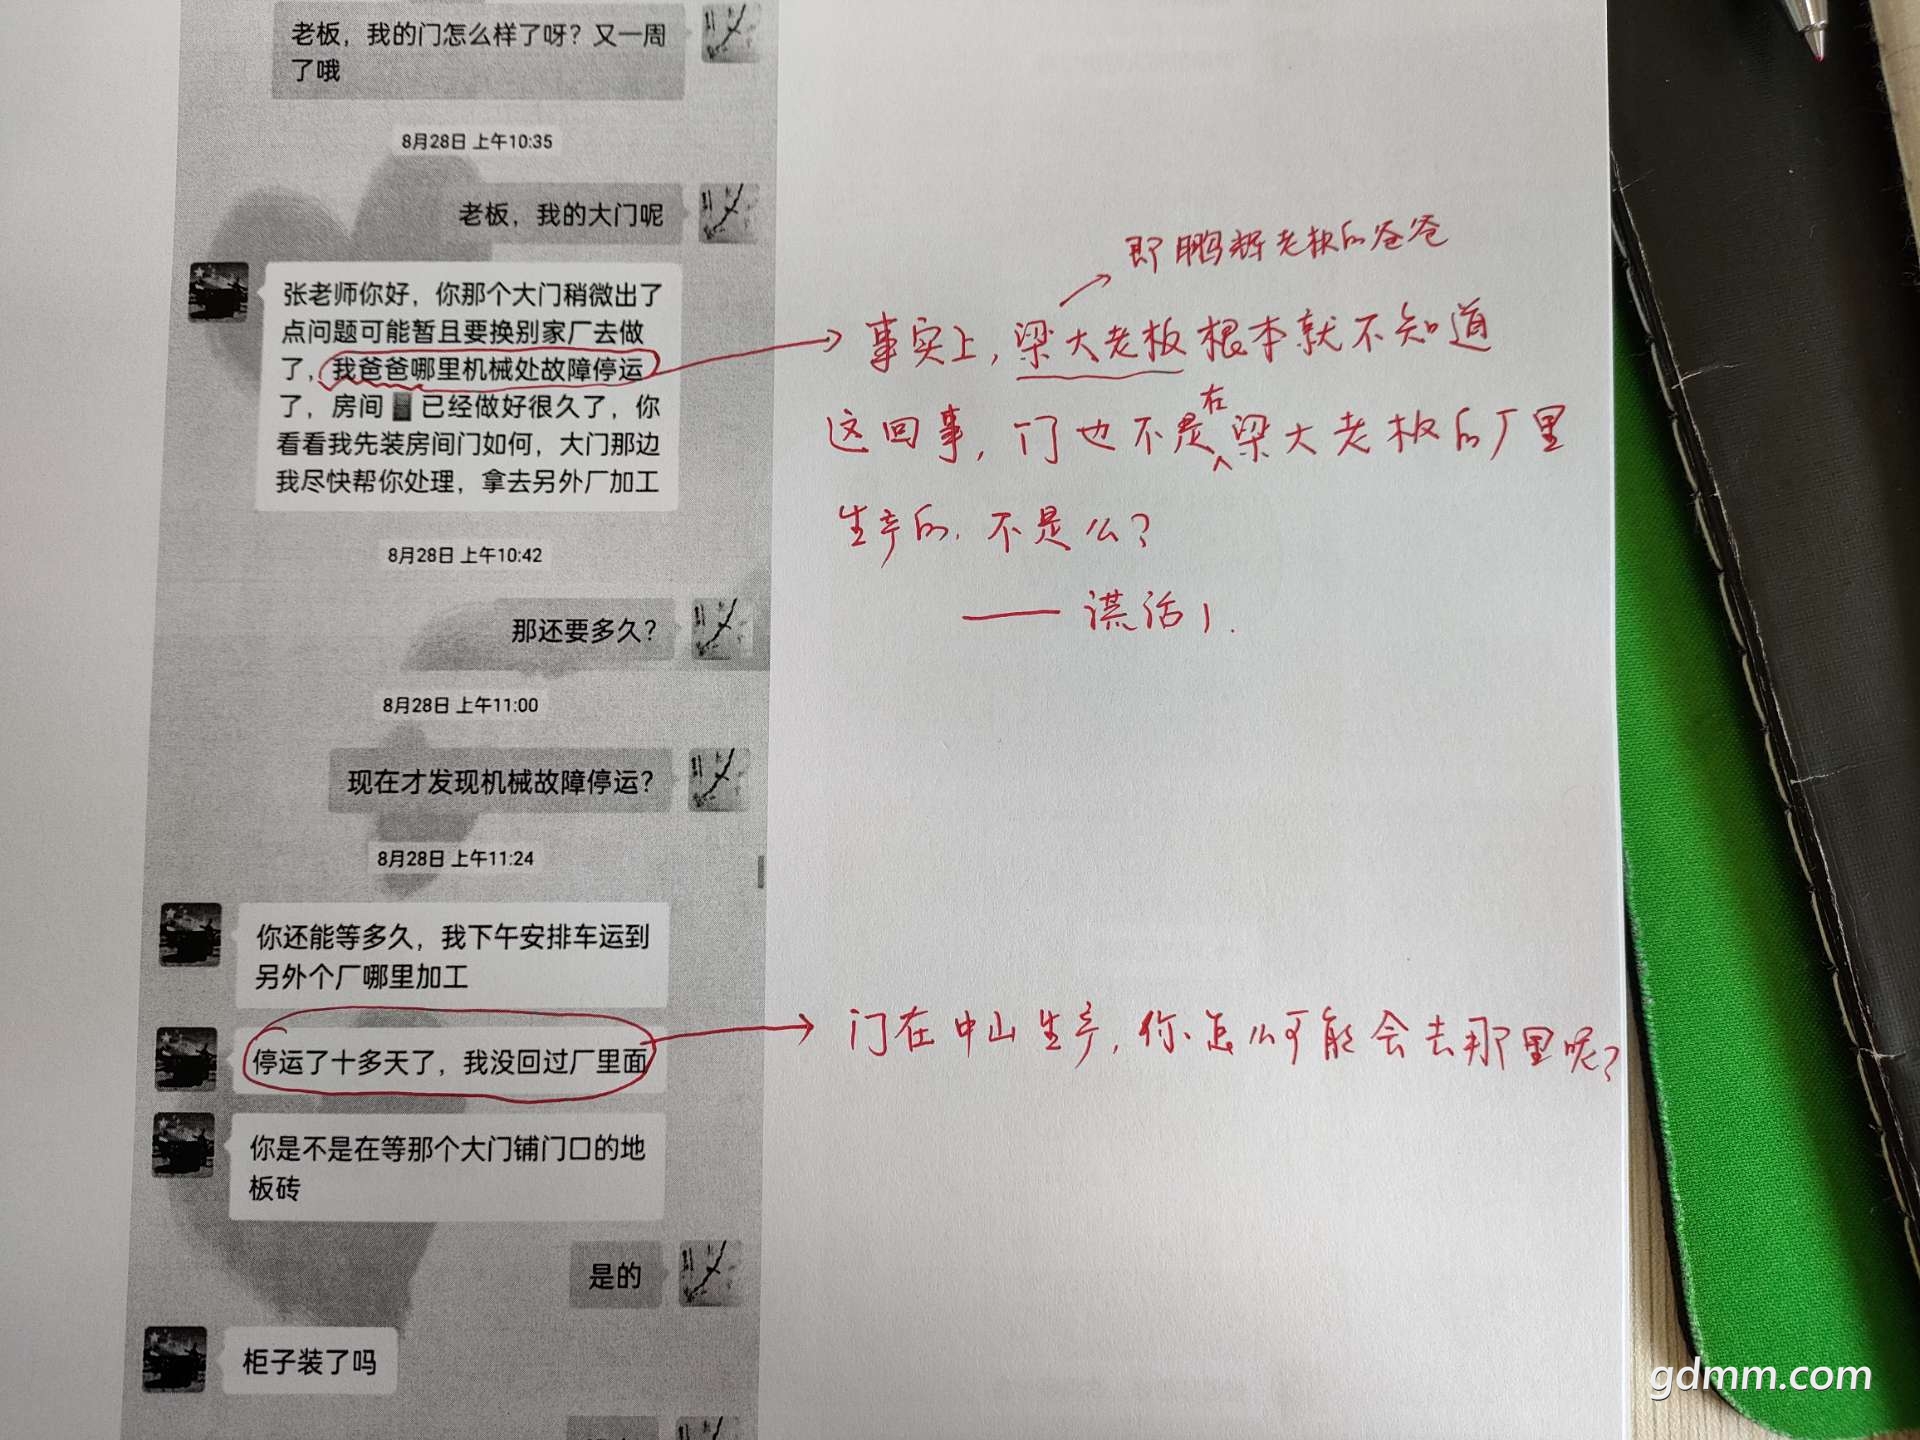 老板，我的门怎么样了呀？又一周
了哦
8月28日 上午10:35
老板，我的大门呢
张老师你好，你那个大门稍微出了
点问题可能暂且要换别家厂去做
了，我爸爸哪里机械处故障停运
了，房间 已经做好很久了，你
看看我先装房间门如何，大门那边
我尽快帮你处理，拿去另外厂加工
即鹏辉老板的爸爸
事实上，梁大老板根本就不知道
这回事，门也不是在梁大老板的厂里
生产的，不是么？
——谎话1.
8月28日 上午10:42
那还要多久？
8月28日 上午11:00
现在才发现机械故障停运？
8月28日 上午11:24
你还能等多久，我下午安排车运到
另外个厂哪里加工
停运了十多天了，我没回过厂里面
门在中山生产，你怎么可能会去那里呢？
你是不是在等那个大门铺门口的地
板砖
是的
柜子装了吗
gdmm.com